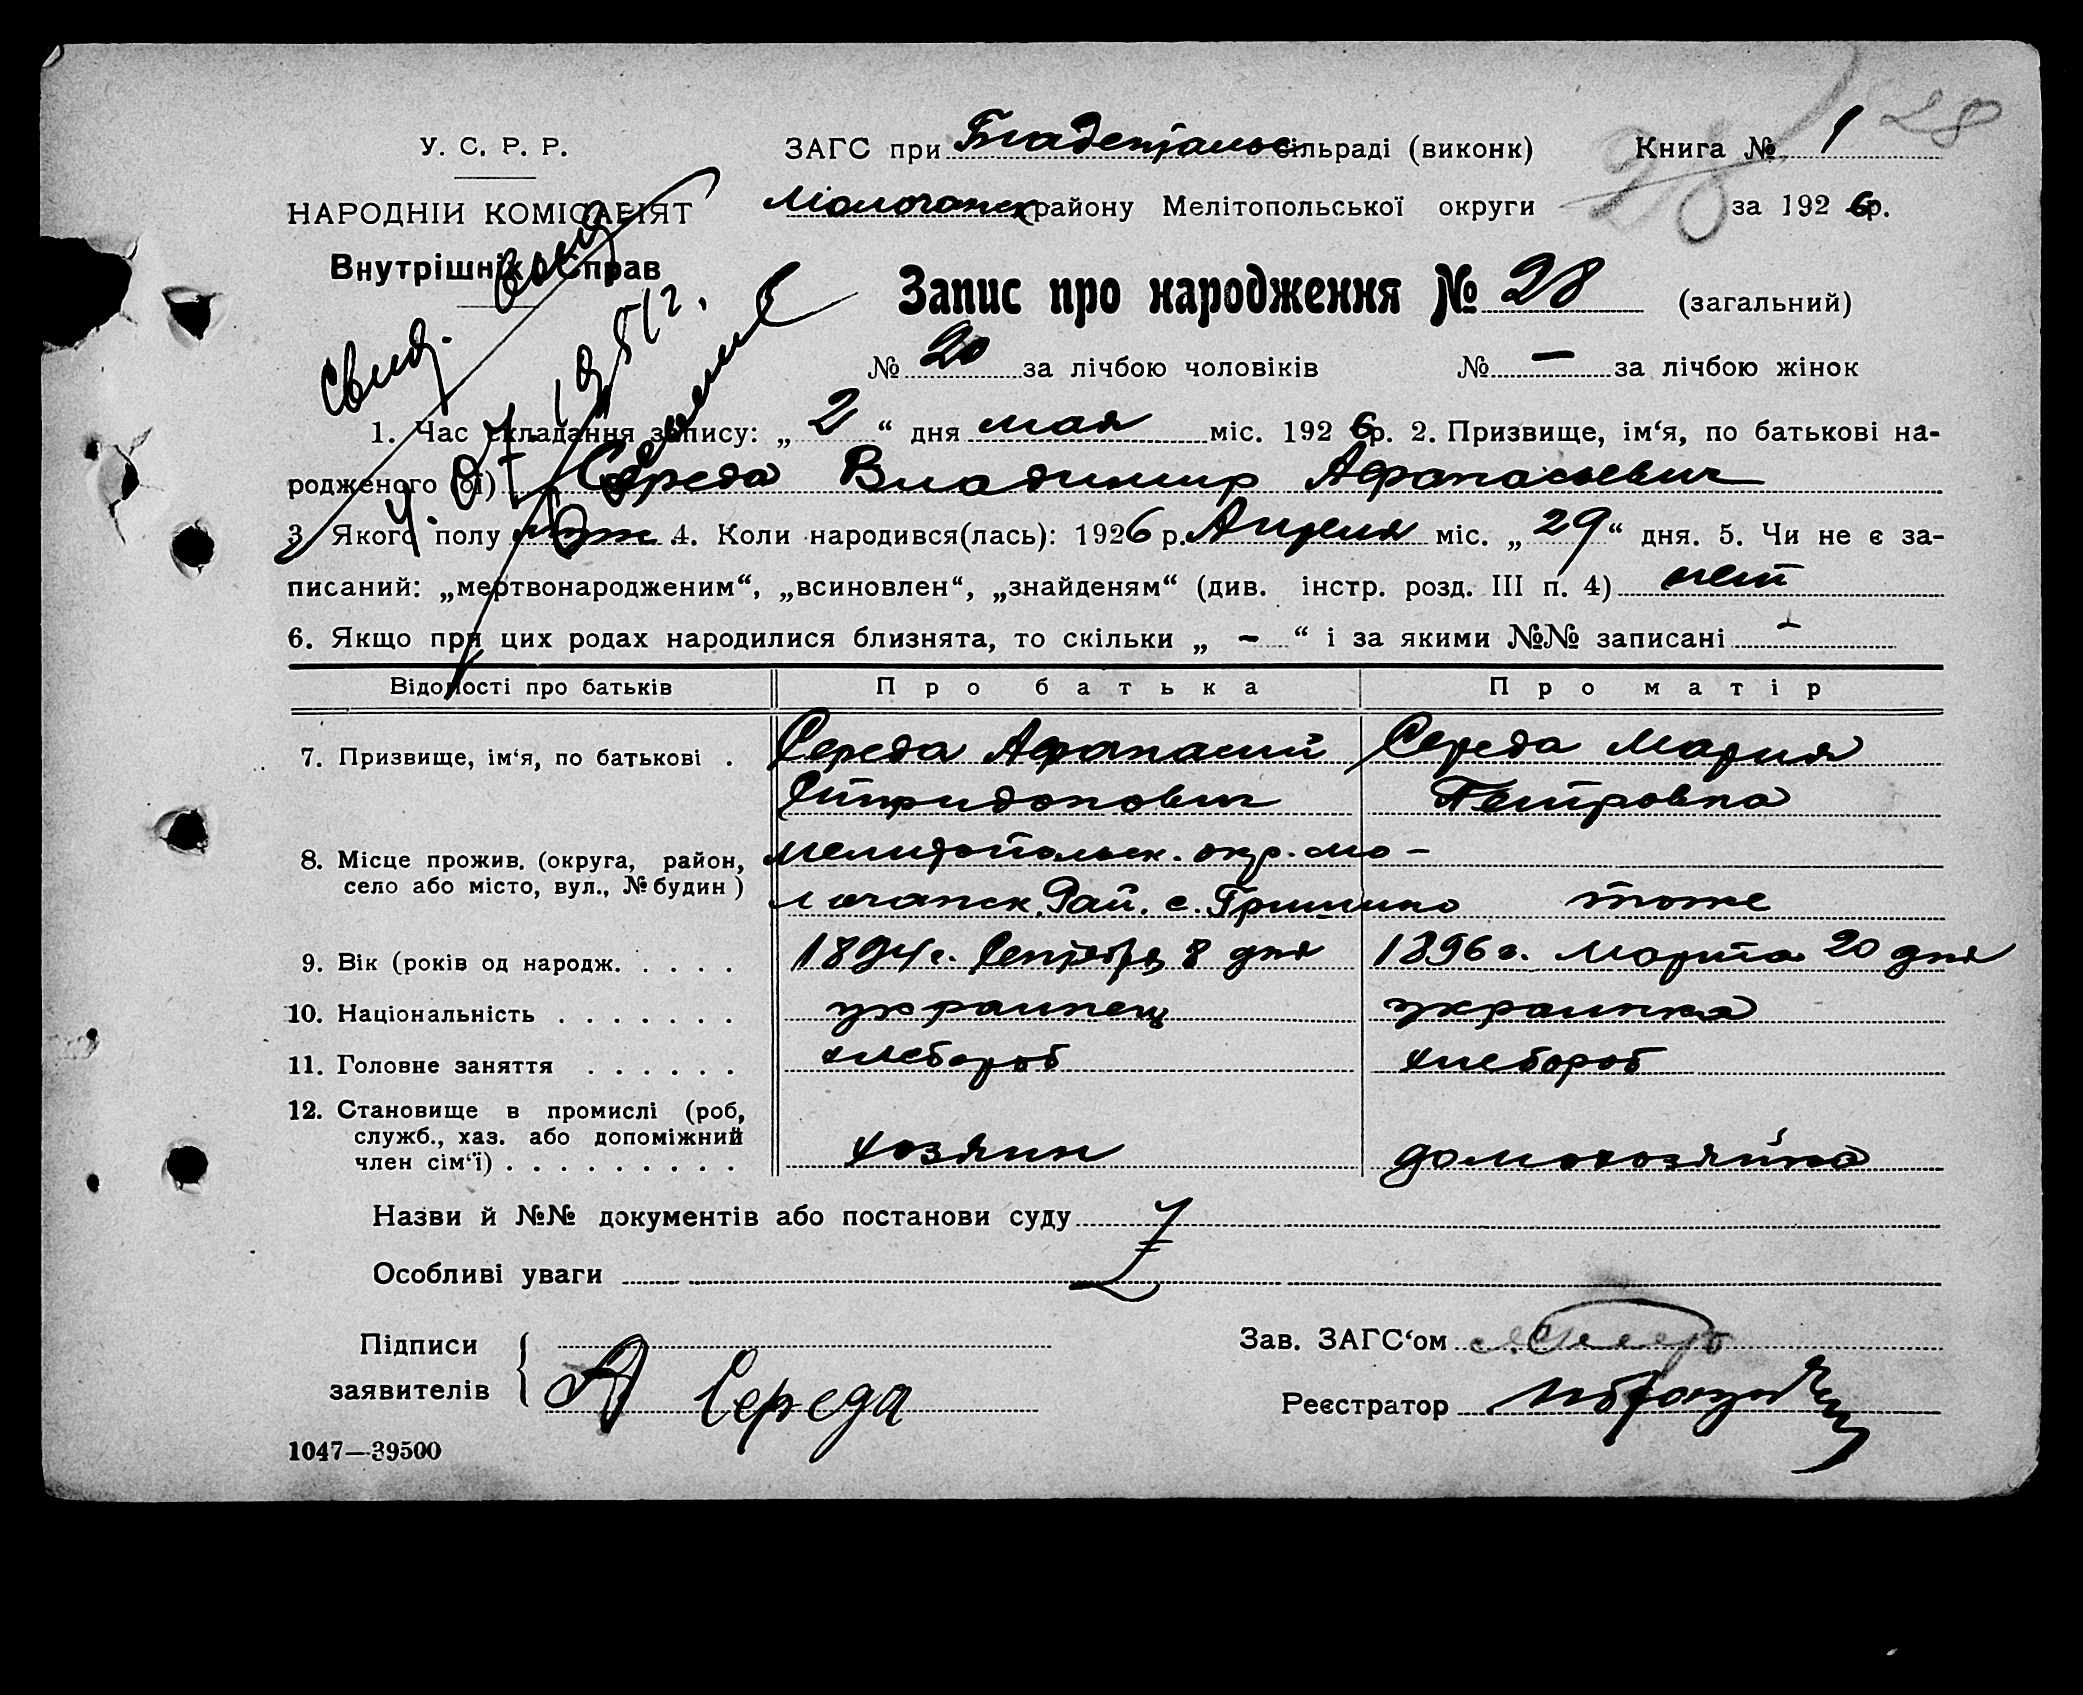 28
У. С. Р. Р. ЗАГС при сільраді (виконк) Книга № 1
28
НАРОДНІЙ КОМІСАРІЯТ Молочанск району Мелітопольської округи за 1926 р.
Внутрішніх Справ
Свид. выд.
Запис про народження № 28 (загальний)
№ 20 за лічбою чоловіків № — за лічбою жінок
1. Час складання запису: „ 2 “ дня мая міс. 1926 р. 2. Призвище, ім‘я, по батькові на-
родженого (ої) Середа Владимир Афанасьевич
3. Якого полу муж 4. Коли народився(лась): 1926 р. Апреля міс. „ 29 “ дня. 5. Чи не є за-
писаний: „мертвонародженим“, „всиновлен“, „знайденям“ (див. інстр. розд. III п. 4) нет
6. Якщо при цих родах народилися близнята, то скільки „ - “ і за якими №№ записані -
Відомості про батьків Про батька Про матір
7. Призвище, ім‘я, по батькові . Середа Афанасий Середа Мария
Спиридонович Петровна
8. Місце прожив. (округа, район, Мелитопольск. окр. Мо-
село або місто, вул., № будин) лочанск. Рай. с. Гришино тоже
9. Вік (років од народж. . . . . 1894 г. Сентября 8 дня 1896 г. Марта 20 дня
10. Національність . . . . . . . украинец украинка
11. Головне заняття . . . . . . хлебороб хлебороб
12. Становище в промислі (роб,
служб., хаз. або допоміжний
член сім‘ї) . . . . . . . . . хозяин домохозяйка
Назви й №№ документів або постанови суду
Особливі уваги
Підписи Зав. ЗАГС‘ом
заявителів А Середа Реєстратор
1047—39500